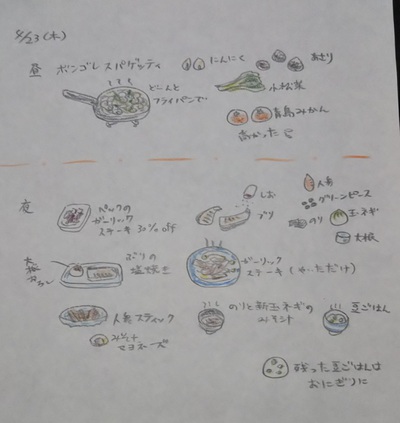 4/23(木)
昼 ボンゴレスパゲッティ
にんにく
あさり
どーんと
フライパンで
小松菜
青島みかん
高かった
夜
パックの
ガーリック
ステーキ 30% off
しお
ブリ
人参
グリーンピース
のり
玉ネギ
大根
大根
おろし
ぶりの
塩焼き
ガーリック
ステーキ
人参スティック
みそ+
マヨネーズ
のりと新玉ネギの
豆ごはん
残った豆ごはんは
おにぎりに